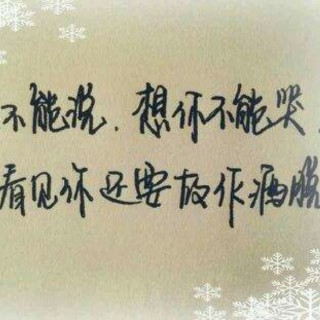 不能说. 想你不能哭.
看见你还要放作脱